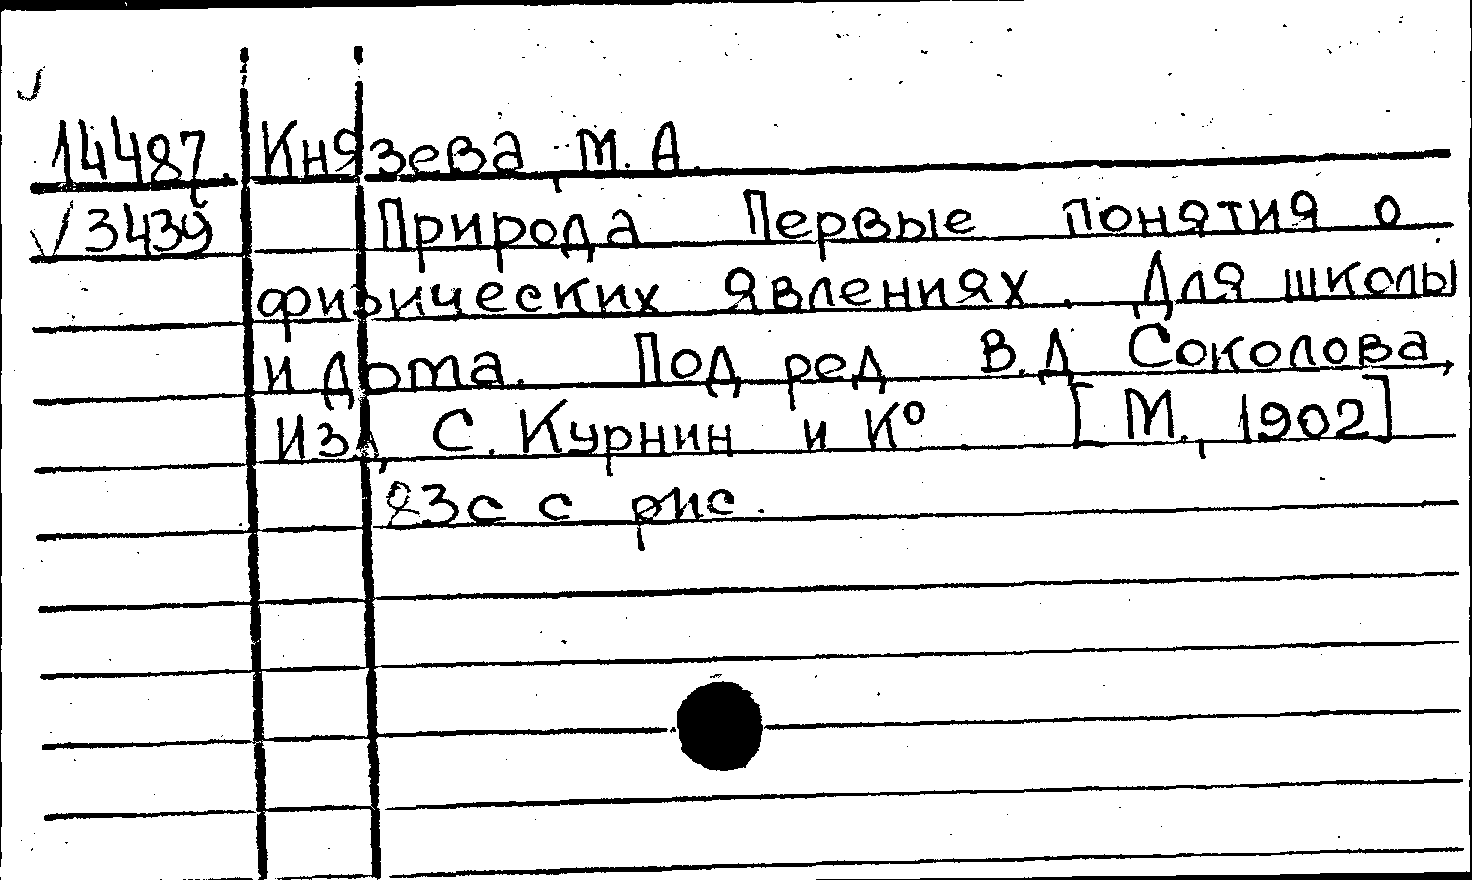 14487. Князева, М. А.
√3439 Природа Первые понятия о
физических явлениях. Для школы
и дома. Под ред В.Д Соколова,
Изд, С. Курнин и К° [М., 1902]
83с с рис.